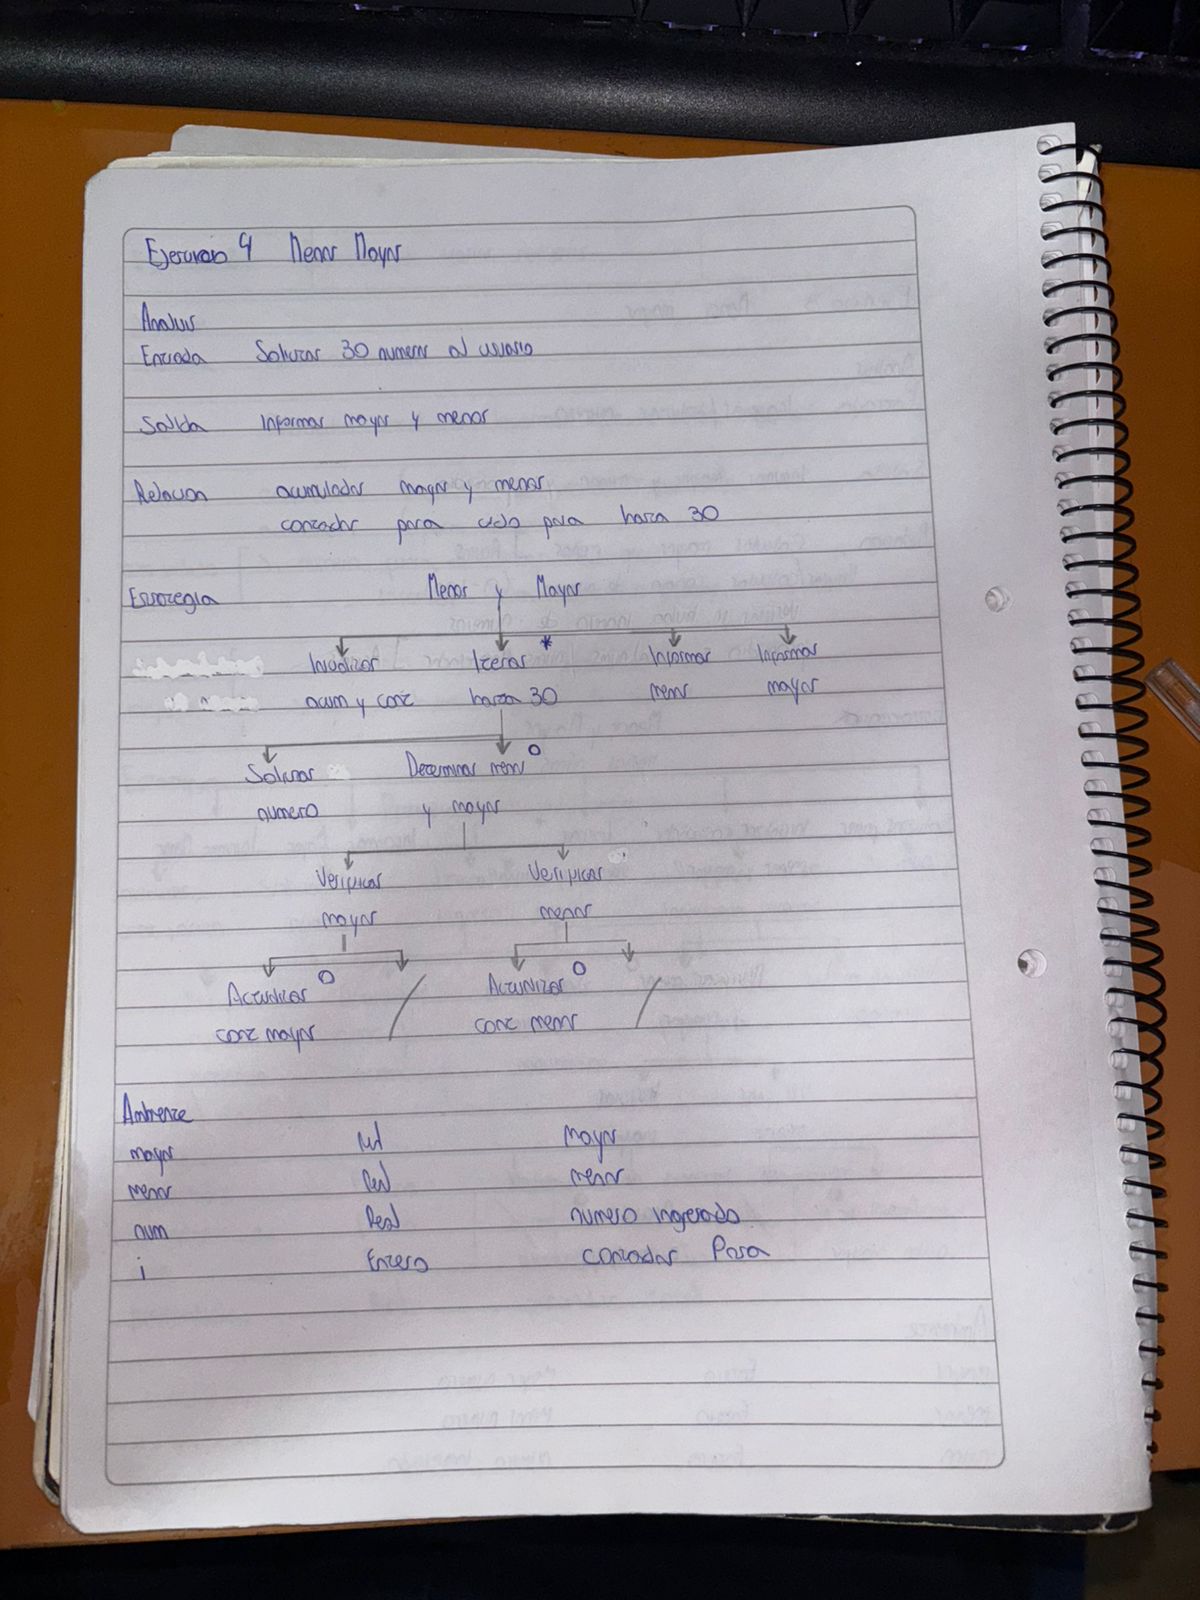 Ejercicio 4 Menor Mayor
Analisis
Entrada Solicitar 30 numeros al usuario
Salida Informar mayor y menor
Relacion acumulador mayor y menor
contador para ciclo para hasta 30
Estrategia Menor y Mayor
Inicializar Iterar * Informar Informar
acum y cont hasta 30 menor mayor
Solicitar Determinar menor O
numero y mayor
Verificar Verificar
mayor menor
Actualizar O / Actualizar O /
cont mayor cont menor
Ambiente
mayor real mayor
menor Real menor
num Real numero ingresado
i Entero contador Para